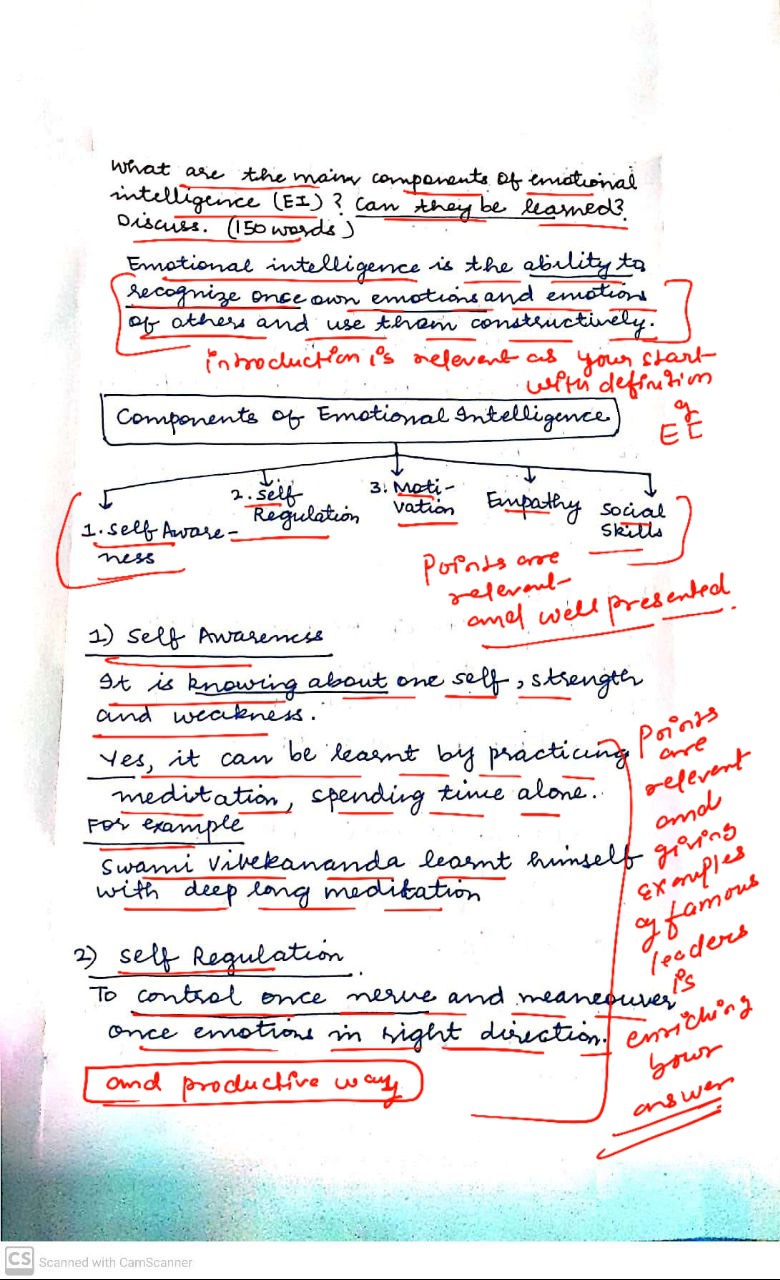 What are the main components of emotional
intelligence (EI) ? Can they be learned?
Discuss. (150 words)
Emotional intelligence is the ability to
recognize once own emotions and emotions
of others and use them constructively.
introduction is relevent as your start
with definition
of
EI
Components of Emotional Intelligence
1. Self Aware-
ness
2. Self
Regulation
3. Moti-
vation
Empathy
Social
Skills
Points are
relevant
and well presented.
1) Self Awareness
It is knowing about one self, strength
and weakness.
Yes, it can be learnt by practicing
meditation, spending time alone.
For example
Swami Vivekananda learnt himself
with deep long meditation
Points
are
relevent
and
giving
examples
of famous
leaders
is
enriching
your
answer
2) Self Regulation
To control once nerve and meaneouver
once emotions in right direction.
and productive way
CS Scanned with CamScanner